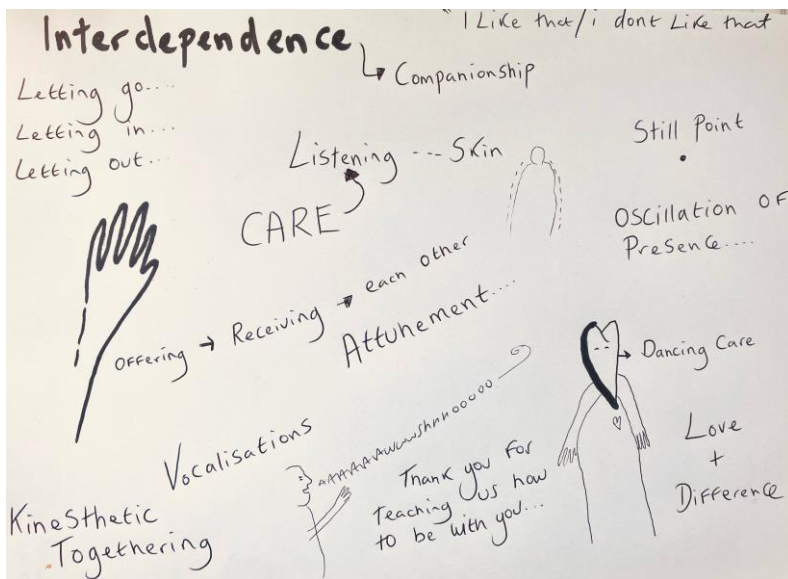 Interdependence
"I Like that/i dont Like that
Companionship
Letting go....
Letting in...
Letting out...
Listening --- Skin
Still Point
CARE
OSCILLATION OF
Presence....
OFFering → Receiving → each other
Attunement....
Dancing Care
Vocalisations
AAAAAAAWWWWshhhooooooo
Thank you for
teaching us how
to be with you...
Love
+
Difference
KineSthetic
Togethering